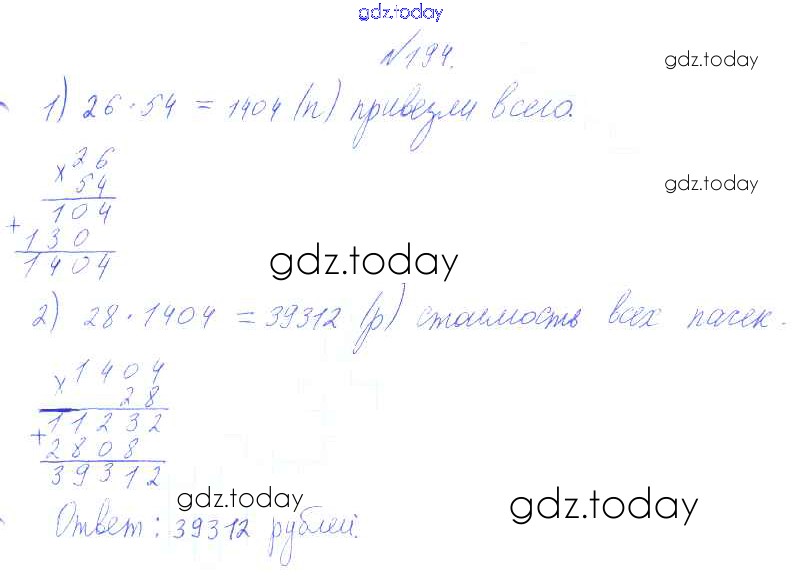 gdz.today
№194.
gdz.today
1) 26·54 = 1404 (п) привезли всего.
× 26
54
gdz.today
104
+
130
gdz.today
1404
2) 28·1404 = 39312 (р) стоимость всех пачек.
× 1404
28
11232
+ 2808
39312
gdz.today
gdz.today
Ответ: 39312 рублей.